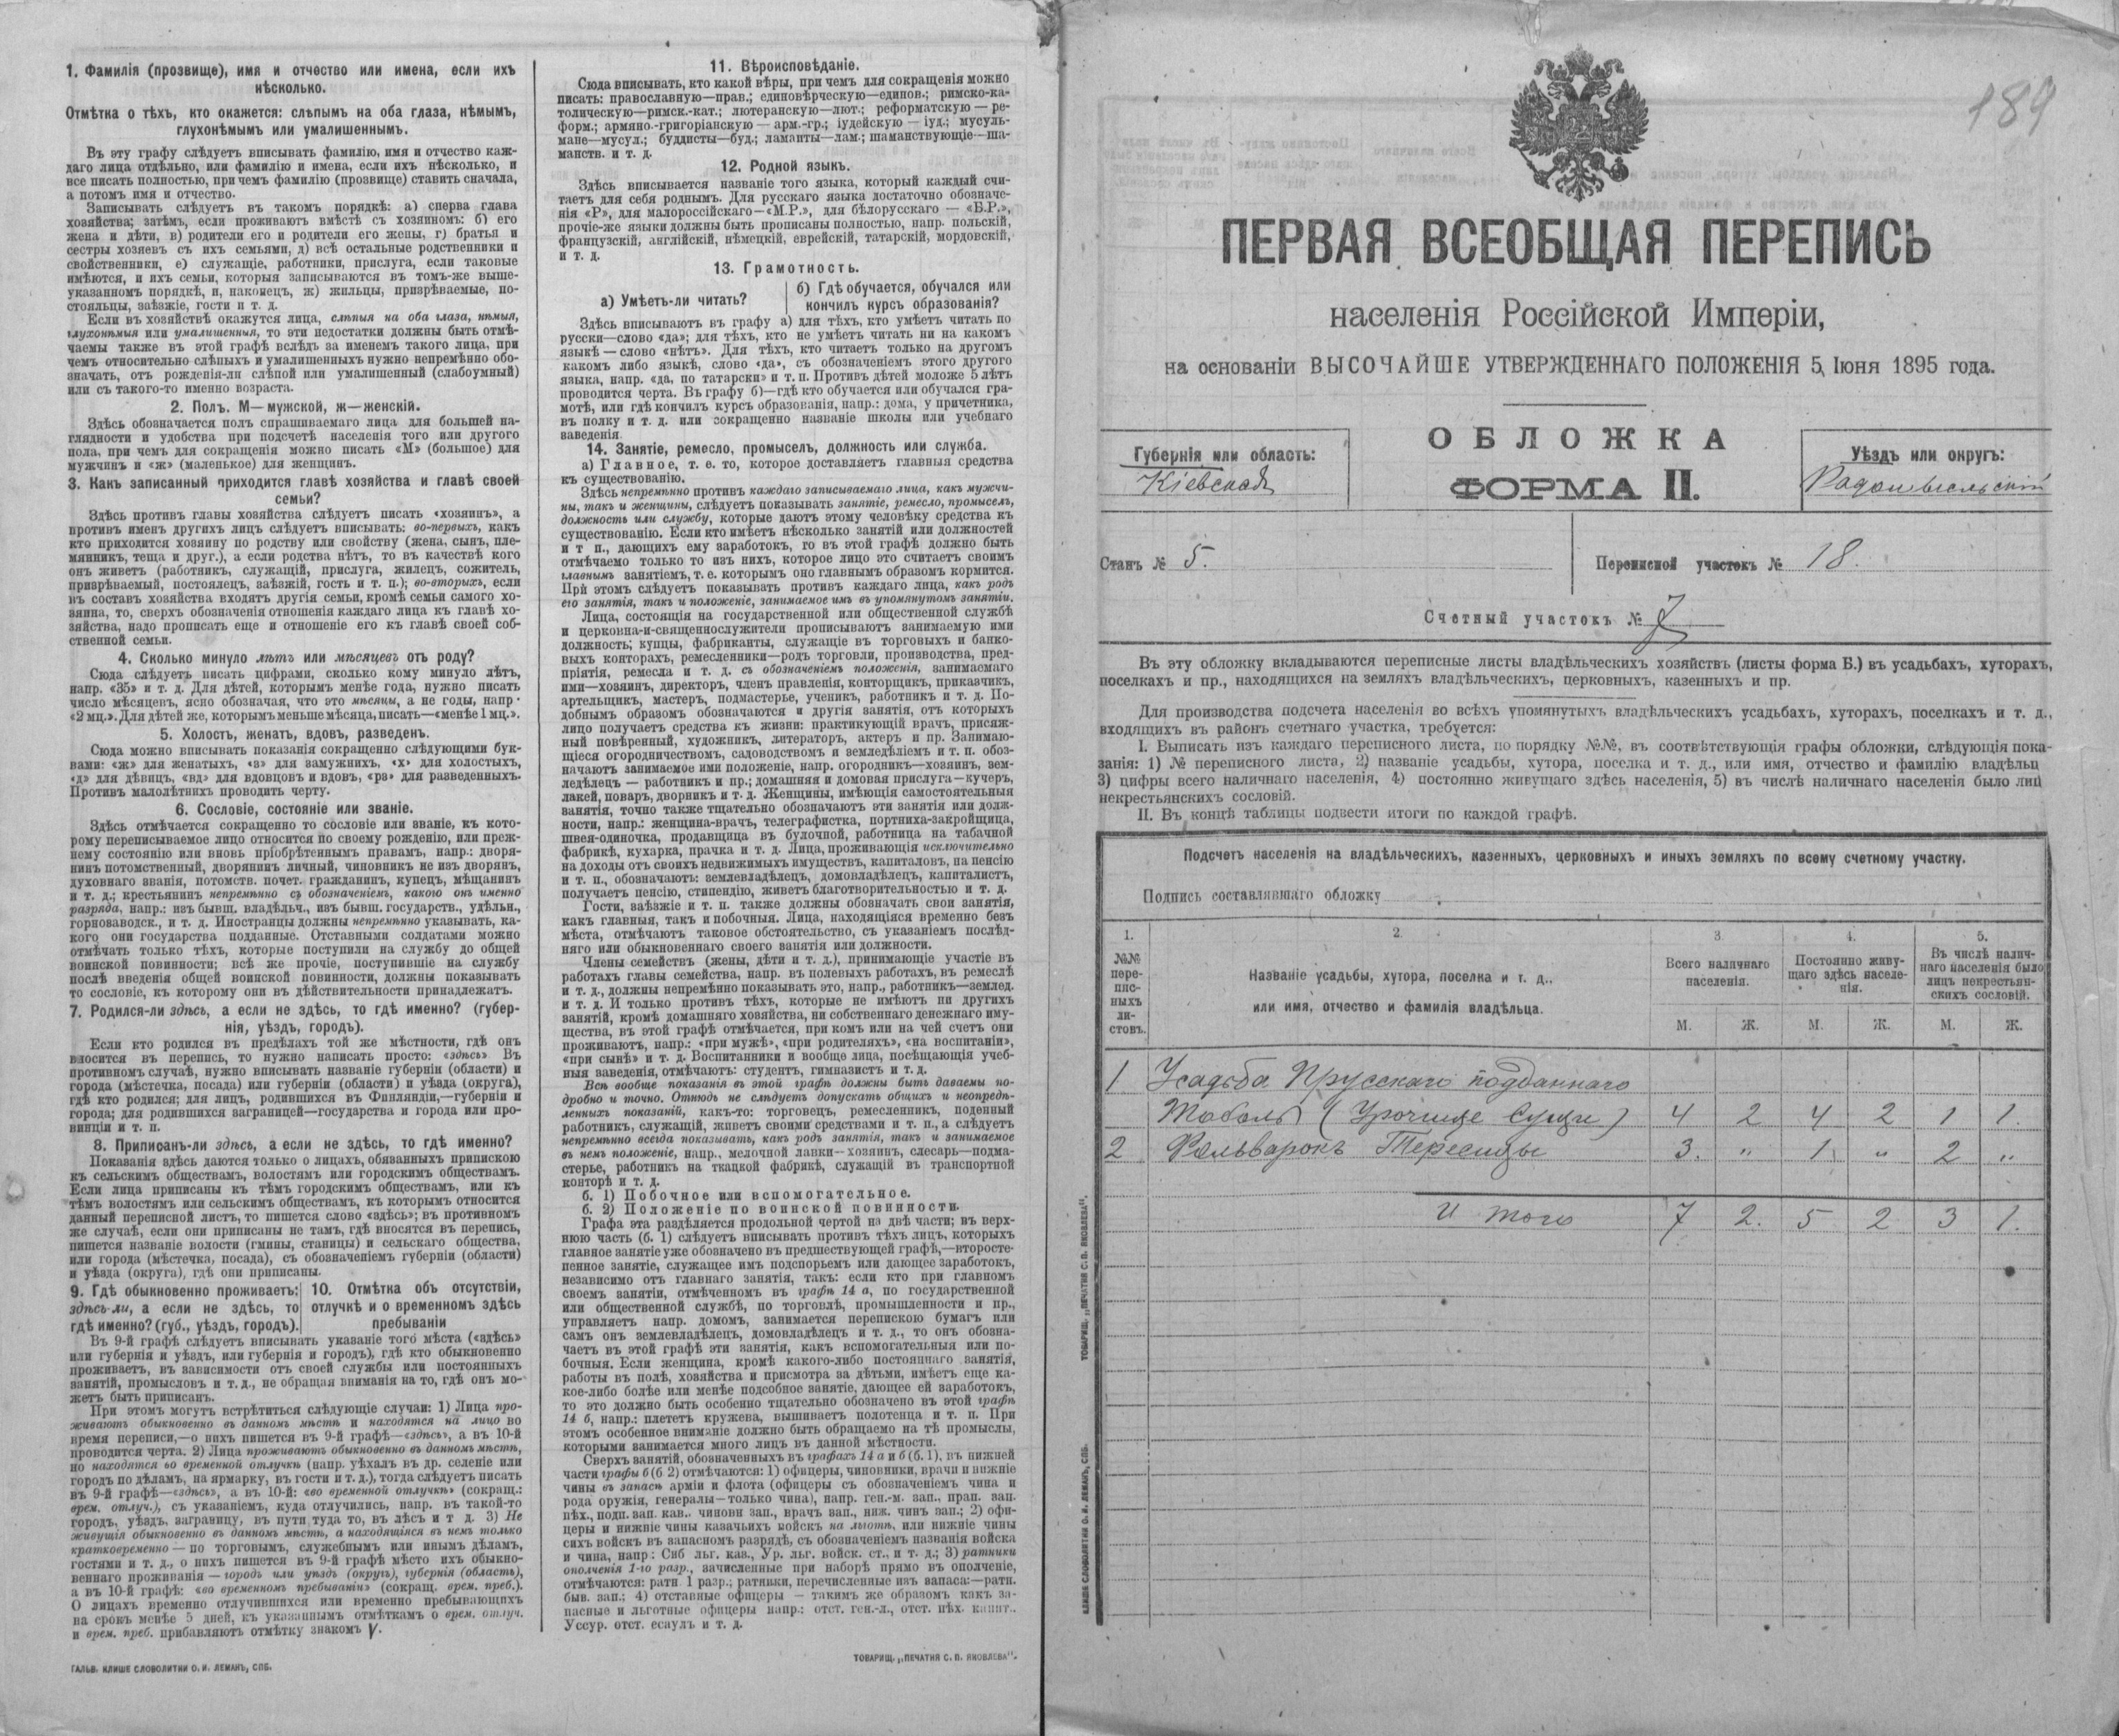 1. Фамилія (прозвище), имя и отчество или имена, если ихъ
нѣсколько.
Отмѣтка о тѣхъ, кто окажется: слѣпымъ на оба глаза, нѣмымъ,
глухонѣмымъ или умалишеннымъ.
Въ эту графу слѣдуетъ вписывать фамилію, имя и отчество каж-
даго лица отдѣльно, или фамилію и имена, если ихъ нѣсколько, и
все писать полностью, при чемъ фамилію (прозвище) ставить сначала,
а потомъ имя и отчество.
Записывать слѣдуетъ въ такомъ порядкѣ: а) сперва глава
хозяйства; затѣмъ, если проживаютъ вмѣстѣ съ хозяиномъ: б) его
жена и дѣти, в) родители его и родители его жены, г) братья и
сестры хозяевъ съ ихъ семьями, д) всѣ остальные родственники и
свойственники, е) служащіе, работники, прислуга, если таковые
имѣются, и ихъ семьи, которыя записываются въ томъ-же выше-
указанномъ порядкѣ, и, наконецъ, ж) жильцы, призрѣваемые, по-
стояльцы, заѣзжіе, гости и т. д.
Если въ хозяйствѣ окажутся лица, слѣпыя на оба глаза, нѣмыя,
глухонѣмыя или умалишенныя, то эти недостатки должны быть отмѣ-
чаемы также въ этой графѣ вслѣдъ за именемъ такого лица, при
чемъ относительно слѣпыхъ и умалишенныхъ нужно непремѣнно обо-
значать, отъ рожденія-ли слѣпой или умалишенный (слабоумный)
или съ такого-то именно возраста.
2. Полъ. М—мужской, ж—женскій.
Здѣсь обозначается полъ спрашиваемаго лица для большей на-
глядности и удобства при подсчетѣ населенія того или другого
пола, при чемъ для сокращенія можно писать «М» (большое) для
мужчинъ и «ж» (маленькое) для женщинъ.
3. Какъ записанный приходится главѣ хозяйства и главѣ своей
семьи?
Здѣсь противъ главы хозяйства слѣдуетъ писать «хозяинъ», а
противъ именъ другихъ лицъ слѣдуетъ вписывать: во-первыхъ, какъ
кто приходится хозяину по родству или свойству (жена, сынъ, пле-
мянникъ, теща и друг.), а если родства нѣтъ, то въ качествѣ кого
онъ живетъ (работникъ, служащій, прислуга, жилецъ, сожитель,
призрѣваемый, постоялецъ, заѣзжій, гость и т. п.); во-вторыхъ, если
въ составъ хозяйства входятъ другія семьи, кромѣ семьи самого хо-
зяина, то, сверхъ обозначенія отношенія каждаго лица къ главѣ хо-
зяйства, надо прописать еще и отношеніе его къ главѣ своей соб-
ственной семьи.
4. Сколько минуло лѣтъ или мѣсяцевъ отъ роду?
Сюда слѣдуетъ писать цифрами, сколько кому минуло лѣтъ,
напр. «35» и т. д. Для дѣтей, которымъ менѣе года, нужно писать
число мѣсяцевъ, ясно обозначая, что это мѣсяцы, а не годы, напр.
«2 мц.». Для дѣтей же, которымъ меньше мѣсяца, писать—«менѣе 1 мц.».
5. Холостъ, женатъ, вдовъ, разведенъ.
Сюда можно вписывать показанія сокращенно слѣдующими бук-
вами: «ж» для женатыхъ, «з» для замужнихъ, «х» для холостыхъ,
«д» для дѣвицъ, «вд» для вдовцовъ и вдовъ, «рз» для разведенныхъ.
Противъ малолѣтнихъ проводить черту.
6. Сословіе, состояніе или званіе.
Здѣсь отмѣчается сокращенно то сословіе или званіе, къ кото-
рому переписываемое лицо относится по своему рожденію, или преж-
нему состоянію или вновь пріобрѣтеннымъ правамъ, напр.: дворя-
нинъ потомственный, дворянинъ личный, чиновникъ не изъ дворянъ,
духовнаго званія, потомств. почет. гражданинъ, купецъ, мѣщанинъ
и т. д.; крестьянинъ непремѣнно съ обозначеніемъ, какого онъ именно
разряда, напр.: изъ бывш. владѣльч., изъ бывш. государств., удѣльн.,
горнозаводск., и т. д. Иностранцы должны непремѣнно указывать, ка-
кого они государства подданные. Отставными солдатами можно
отмѣчать только тѣхъ, которые поступили на службу до общей
воинской повинности; всѣ же прочіе, поступившіе на службу
послѣ введенія общей воинской повинности, должны показывать
то сословіе, къ которому они въ дѣйствительности принадлежатъ.
7. Родился-ли здѣсь, а если не здѣсь, то гдѣ именно? (губер-
нія, уѣздъ, городъ).
Если кто родился въ предѣлахъ той же мѣстности, гдѣ онъ
вносится въ перепись, то нужно написать просто: «здѣсь» Въ
противномъ случаѣ, нужно вписывать названіе губерніи (области) и
города (мѣстечка, посада) или губерніи (области) и уѣзда (округа),
гдѣ кто родился; для лицъ, родившихся въ Финляндіи,—губерніи и
города; для родившихся заграницей—государства и города или про-
винціи и т. п.
8. Приписанъ-ли здѣсь, а если не здѣсь, то гдѣ именно?
Показанія здѣсь даются только о лицахъ, обязанныхъ припискою
къ сельскимъ обществамъ, волостямъ или городскимъ обществамъ.
Если лица приписаны къ тѣмъ городскимъ обществамъ, или къ
тѣмъ волостямъ или сельскимъ обществамъ, къ которымъ относится
данный переписной листъ, то пишется слово «здѣсь»; въ противномъ
же случаѣ, если они приписаны не тамъ, гдѣ вносятся въ перепись,
пишется названіе волости (гмины, станицы) и сельскаго общества,
или города (мѣстечка, посада), съ обозначеніемъ губерніи (области)
и уѣзда (округа), гдѣ они приписаны.
9. Гдѣ обыкновенно проживаетъ:
здѣсь-ли, а если не здѣсь, то
гдѣ именно? (губ., уѣздъ, городъ).
10. Отмѣтка объ отсутствіи,
отлучкѣ и о временномъ здѣсь
пребываніи
Въ 9-й графѣ слѣдуетъ вписывать указаніе того мѣста («здѣсь»
или губернія и уѣздъ, или губернія и городъ), гдѣ кто обыкновенно
проживаетъ, въ зависимости отъ своей службы или постоянныхъ
занятій, промысловъ и т. д., не обращая вниманія на то, гдѣ онъ мо-
жетъ быть приписанъ.
При этомъ могутъ встрѣтиться слѣдующіе случаи: 1) Лица про-
живаютъ обыкновенно въ данномъ мѣстѣ и находятся на лицо во
время переписи,—о нихъ пишется въ 9-й графѣ—«здѣсь», а въ 10-й
проводится черта. 2) Лица проживаютъ обыкновенно въ данномъ мѣстѣ,
но находятся во временной отлучкѣ (напр. уѣхалъ въ др. селеніе или
городъ по дѣламъ, на ярмарку, въ гости и т. д.), тогда слѣдуетъ писать
въ 9-й графѣ—«здѣсь», а въ 10-й: «во временной отлучкѣ» (сокращ.:
врем. отлуч.), съ указаніемъ, куда отлучились, напр. въ такой-то
городъ, уѣздъ, заграницу, въ пути туда то, въ лѣсъ и т д. 3) Не
живущія обыкновенно въ данномъ мѣстѣ, а находящіяся въ немъ только
кратковременно — по торговымъ, служебнымъ или инымъ дѣламъ,
гостями и т. д., о нихъ пишется въ 9-й графѣ мѣсто ихъ обыкно-
веннаго проживанія — городъ или уѣздъ (округъ), губернія (область),
а въ 10-й графѣ: «во временномъ пребываніи» (сокращ. врем. преб.).
О лицахъ временно отлучившихся или временно пребывающихъ
на срокъ менѣе 5 дней, къ указаннымъ отмѣткамъ о врем. отлуч.
и врем. преб. прибавляютъ отмѣтку знакомъ V.
ГАЛЬВ. КЛИШЕ СЛОВОЛИТНИ О. И. ЛЕМАНЪ, СПБ.
11. Вѣроисповѣданіе.
Сюда вписывать, кто какой вѣры, при чемъ для сокращенія можно
писать: православную—прав.; единовѣрческую—единов.; римско-ка-
толическую—римск.-кат.; лютеранскую—лют.; реформатскую — ре-
форм.; армяно.-григоріанскую — арм.-гр.; іудейскую — іуд.; мусуль-
мане—мусул.; буддисты—буд.; ламаиты—лам.; шаманствующіе—ша-
манств. и т. д.
12. Родной языкъ.
Здѣсь вписывается названіе того языка, который каждый счи-
таетъ для себя роднымъ. Для русскаго языка достаточно обозначе-
нія «Р», для малороссійскаго—«М.Р.», для бѣлорусскаго — «Б.Р.»,
прочіе-же языки должны быть прописаны полностью, напр. польскій,
французскій, англійскій, нѣмецкій, еврейскій, татарскій, мордовскій,
и т. д.
13. Грамотность.
а) Умѣетъ-ли читать?
б) Гдѣ обучается, обучался или
кончилъ курсъ образованія?
Здѣсь вписываютъ въ графу а) для тѣхъ, кто умѣетъ читать по
русски—слово «да»; для тѣхъ, кто не умѣетъ читать ни на какомъ
языкѣ — слово «нѣтъ». Для тѣхъ, кто читаетъ только на другомъ
какомъ либо языкѣ, слово «да», съ обозначеніемъ этого другого
языка, напр. «да, по татарски» и т. п. Противъ дѣтей моложе 5 лѣтъ
проводится черта. Въ графу б)—гдѣ кто обучается или обучался гра-
мотѣ, или гдѣ кончилъ курсъ образованія, напр.: дома, у причетника,
въ полку и т. д. или сокращенно названіе школы или учебнаго
заведенія
14. Занятіе, ремесло, промыселъ, должность или служба.
а) Главное, т. е. то, которое доставляетъ главныя средства
къ существованію.
Здѣсь непремѣнно противъ каждаго записываемаго лица, какъ мужчи-
ны, такъ и женщины, слѣдуетъ показывать занятіе, ремесло, промыселъ,
должность или службу, которые даютъ этому человѣку средства къ
существованію. Если кто имѣетъ нѣсколько занятій или должностей
и т п., дающихъ ему заработокъ, то въ этой графѣ должно быть
отмѣчаемо только то изъ нихъ, которое лицо это считаетъ своимъ
главнымъ занятіемъ, т. е. которымъ оно главнымъ образомъ кормится.
При этомъ слѣдуетъ показывать противъ каждаго лица, какъ родъ
его занятія, такъ и положеніе, занимаемое имъ въ упомянутомъ занятіи.
Лица, состоящія на государственной или общественной службѣ
и церковно-и-священнослужители прописываютъ занимаемую ими
должность; купцы, фабриканты, служащіе въ торговыхъ и банко-
выхъ конторахъ, ремесленники—родъ торговли, производства, пред-
пріятія, ремесла и т. д. съ обозначеніемъ положенія, занимаемаго
ими—хозяинъ, директоръ, членъ правленія, конторщикъ, приказчикъ,
артельщикъ, мастеръ, подмастерье, ученикъ, работникъ и т. д. По-
добнымъ образомъ обозначаются и другія занятія, отъ которыхъ
лицо получаетъ средства къ жизни: практикующій врачъ, присяж-
ный повѣренный, художникъ, литераторъ, актеръ и пр. Занимаю-
щіеся огородничествомъ, садоводствомъ и земледѣліемъ и т. п. обоз-
начаютъ занимаемое ими положеніе, напр. огородникъ—хозяинъ, зем-
ледѣлецъ — работникъ и пр.; домашняя и домовая прислуга—кучеръ,
лакей, поваръ, дворникъ и т. д. Женщины, имѣющія самостоятельныя
занятія, точно также тщательно обозначаютъ эти занятія или долж-
ности, напр.: женщина-врачъ, телеграфистка, портниха-закройщица,
швея-одиночка, продавщица въ булочной, работница на табачной
фабрикѣ, кухарка, прачка и т. д. Лица, проживающія исключительно
на доходы отъ своихъ недвижимыхъ имуществъ, капиталовъ, на пенсію
и т. п., обозначаютъ: землевладѣлецъ, домовладѣлецъ, капиталистъ,
получаетъ пенсію, стипендію, живетъ благотворительностью и т. д.
Гости, заѣзжіе и т. п. также должны обозначать свои занятія,
какъ главныя, такъ и побочныя. Лица, находящіяся временно безъ
мѣста, отмѣчаютъ таковое обстоятельство, съ указаніемъ послѣд-
няго или обыкновеннаго своего занятія или должности.
Члены семействъ (жены, дѣти и т. д.), принимающіе участіе въ
работахъ главы семейства, напр. въ полевыхъ работахъ, въ ремеслѣ
и т. д., должны непремѣнно показывать это, напр., работникъ—землед.
и т. д. И только противъ тѣхъ, которые не имѣютъ ни другихъ
занятій, кромѣ домашняго хозяйства, ни собственнаго денежнаго иму-
щества, въ этой графѣ отмѣчается, при комъ или на чей счетъ они
проживаютъ, напр.: «при мужѣ», «при родителяхъ», «на воспитаніи»,
«при сынѣ» и т. д. Воспитанники и вообще лица, посѣщающія учеб-
ныя заведенія, отмѣчаютъ: студентъ, гимназистъ и т. д.
Всѣ вообще показанія въ этой графѣ должны быть даваемы по-
дробно и точно. Отнюдь не слѣдуетъ допускать общихъ и неопредѣ-
ленныхъ показаній, какъ-то: торговецъ, ремесленникъ, поденный
работникъ, служащій, живетъ своими средствами и т. п., а слѣдуетъ
непремѣнно всегда показывать, какъ родъ занятія, такъ и занимаемое
въ немъ положеніе, напр., мелочной лавки—хозяинъ, слесарь—подма-
стерье, работникъ на ткацкой фабрикѣ, служащій въ транспортной
конторѣ и т. д.
б. 1) Побочное или вспомогательное.
б. 2) Положеніе по воинской повинности.
Графа эта раздѣляется продольной чертой на двѣ части; въ верх-
нюю часть (б. 1) слѣдуетъ вписывать противъ тѣхъ лицъ, которыхъ
главное занятіе уже обозначено въ предшествующей графѣ,—второсте-
пенное занятіе, служащее имъ подспорьемъ или дающее заработокъ,
независимо отъ главнаго занятія, такъ: если кто при главномъ
своемъ занятіи, отмѣченномъ въ графѣ 14 а, по государственной
или общественной службѣ, по торговлѣ, промышленности и пр.,
управляетъ напр. домомъ, занимается перепискою бумагъ или
самъ онъ землевладѣлецъ, домовладѣлецъ и т. д., то онъ обозна-
чаетъ въ этой графѣ эти занятія, какъ вспомогательныя или по-
бочныя. Если женщина, кромѣ какого-либо постояннаго занятія,
работы въ полѣ, хозяйства и присмотра за дѣтьми, имѣетъ еще ка-
кое-либо болѣе или менѣе подсобное занятіе, дающее ей заработокъ,
то это должно быть особенно тщательно обозначено въ этой графѣ
14 б, напр.: плететъ кружева, вышиваетъ полотенца и т. п. При
этомъ особенное вниманіе должно быть обращаемо на тѣ промыслы,
которыми занимается много лицъ въ данной мѣстности.
Сверхъ занятій, обозначенныхъ въ графахъ 14 а и б (б. 1), въ нижней
части графы б (б 2) отмѣчаются: 1) офицеры, чиновники, врачи и нижніе
чины въ запасѣ арміи и флота (офицеры съ обозначеніемъ чина и
рода оружія, генералы—только чина), напр. ген.-м. зап., прап. зап.
пѣх., подп. зап. кав., чиновн зап., врачъ зап., ниж. чинъ зап.; 2) офи-
церы и нижніе чины казачьихъ войскъ на льготѣ, или нижніе чины
сихъ войскъ въ запасномъ разрядѣ, съ обозначеніемъ названія войска
и чина, напр: Сиб льг. кав., Ур. льг. войск. ст., и т. д.; 3) ратники
ополченія 1-го разр., зачисленные при наборѣ прямо въ ополченіе,
отмѣчаются: ратн 1 разр.; ратники, перечисленные изъ запаса:—ратн.
быв. зап.; 4) отставные офицеры — такимъ же образомъ какъ за-
пасные и льготные офицеры напр.: отст. ген.-л., отст. пѣх. капит.,
Уссур. отст. есаулъ и т. д.
ТОВАРИЩ. „ПЕЧАТНЯ С. П. ЯКОВЛЕВА“.
189
ПЕРВАЯ ВСЕОБЩАЯ ПЕРЕПИСЬ
населенія Россійской Имперіи,
на основаніи ВЫСОЧАЙШЕ УТВЕРЖДЕННАГО ПОЛОЖЕНІЯ 5 Іюня 1895 года.
ОБЛОЖКА
ФОРМА II.
Губернія или область:
Кіевская
Уѣздъ или округъ:
Радомысльскій
Станъ № 5.
Переписной участокъ № 18.
Счетный участокъ № 7
Въ эту обложку вкладываются переписные листы владѣльческихъ хозяйствъ (листы форма Б.) въ усадьбахъ, хуторахъ,
поселкахъ и пр., находящихся на земляхъ владѣльческихъ, церковныхъ, казенныхъ и пр.
Для производства подсчета населенія во всѣхъ упомянутыхъ владѣльческихъ усадьбахъ, хуторахъ, поселкахъ и т. д.,
входящихъ въ районъ счетнаго участка, требуется:
I. Выписать изъ каждаго переписного листа, по порядку №№, въ соотвѣтствующія графы обложки, слѣдующія пока-
занія: 1) № переписного листа, 2) названіе усадьбы, хутора, поселка и т. д., или имя, отчество и фамилію владѣльц
3) цифры всего наличнаго населенія, 4) постоянно живущаго здѣсь населенія, 5) въ числѣ наличнаго населенія было лиц
некрестьянскихъ сословій.
II. Въ концѣ таблицы подвести итоги по каждой графѣ.
Подсчетъ населенія на владѣльческихъ, казенныхъ, церковныхъ и иныхъ земляхъ по всему счетному участку.
Подпись составлявшаго обложку
1. 2. 3. 4. 5.
№№
пере-
пис-
ныхъ
ли-
стовъ.
Названіе усадьбы, хутора, поселка и т. д.,
или имя, отчество и фамилія владѣльца.
Всего наличнаго
населенія.
Постоянно живу-
щаго здѣсь населе-
нія.
Въ числѣ налич-
наго населенія было
лицъ некрестьян-
скихъ сословій.
М. Ж. М. Ж. М. Ж.
1 Усадьба Прусскаго подданнаго
(Урочище Сущи) 4 2 4 2 1 1.
2 Фольварокъ Тересицы 3. " 1 " 2 "
И того 7 2. 5 2 3 1.
КЛИШЕ СЛОВОЛИТНИ О. И. ЛЕМАНЪ, СПБ.
ТОВАРИЩ. „ПЕЧАТНЯ С. П. ЯКОВЛЕВА“.